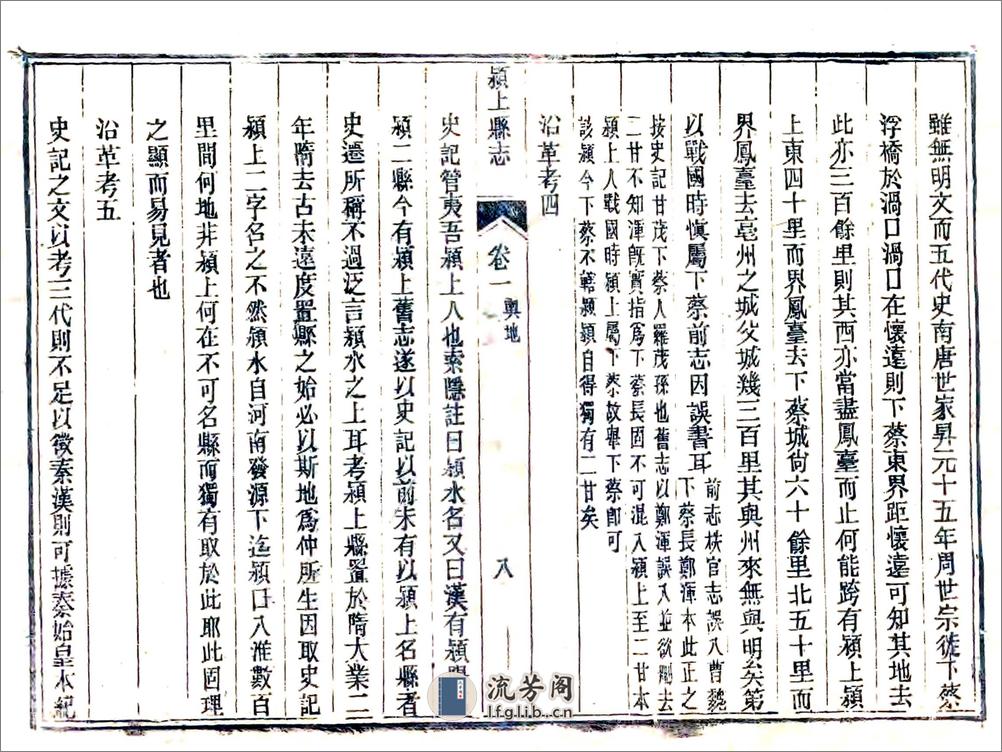 雖無明文而五代史南唐世家昇元十五年周世宗徙下蔡
浮橋於渦口渦口在懷遠則下蔡東界距懷遠可知其地去
此亦三百餘里則其西亦當盡鳳臺而止何能跨有潁上潁
上東四十里而界鳳臺去下蔡城尙六十餘里北五十里而
界鳳臺去亳州之城父城幾三百里其與州來無與明矣第
以戰國時愼屬下蔡前志因誤書耳
前志秩官志誤入曹魏
下蔡長鄭渾本此正之
按史記甘茂下蔡人羅茂孫也舊志以鄭渾誤入並欲刪去
二甘不知渾旣實指爲下蔡長固不可混入潁上至二甘本
潁上人戰國時潁上屬下蔡故舉下蔡卽可
該潁今下蔡不轄潁潁自得獨有二甘矣
沿革考四
潁上縣志
卷一
輿地
八
史記管夷吾潁上人也索隱註曰潁水名又曰漢有潁陽
潁二縣今有潁上舊志遂以史記以前未有以潁上名縣者
史遷所稱不過泛言潁水之上耳考潁上縣置於隋大業二
年隋去古未遠度置縣之始必以斯地爲仲所生因取史記
潁上二字名之不然潁水自河南發源下迄潁口入淮數百
里間何地非潁上何在不可名縣而獨有取於此耶此固理
之顯而易見者也
沿革考五
史記之文以考三代則不足以徵秦漢則可據秦始皇本紀
流芳阁
lfglib.cn